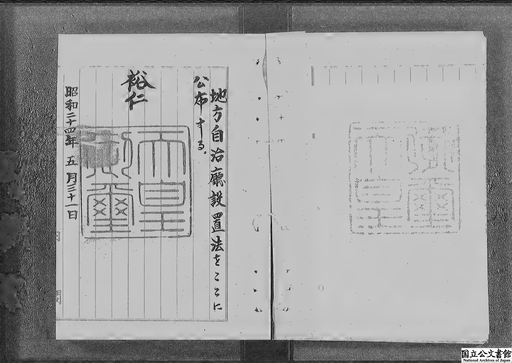 地方自治廳設置法をここに
公布する。
裕仁
天皇御璽
昭和二十四年五月三十一日
国立公文書館
National Archives of Japan